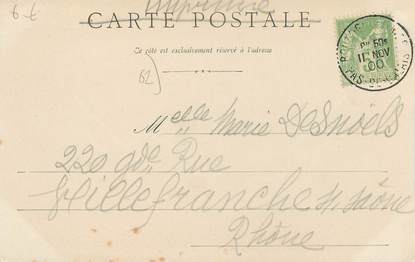 6 €
Imprimé
CARTE POSTALE
Ce côté est exclusivement réservé à l'adresse
62)
Melle Marie Desnoëls
220 gde Rue
Villefranche s/ saône
Rhône
11 NOV
00
PAS-DE-CALAIS